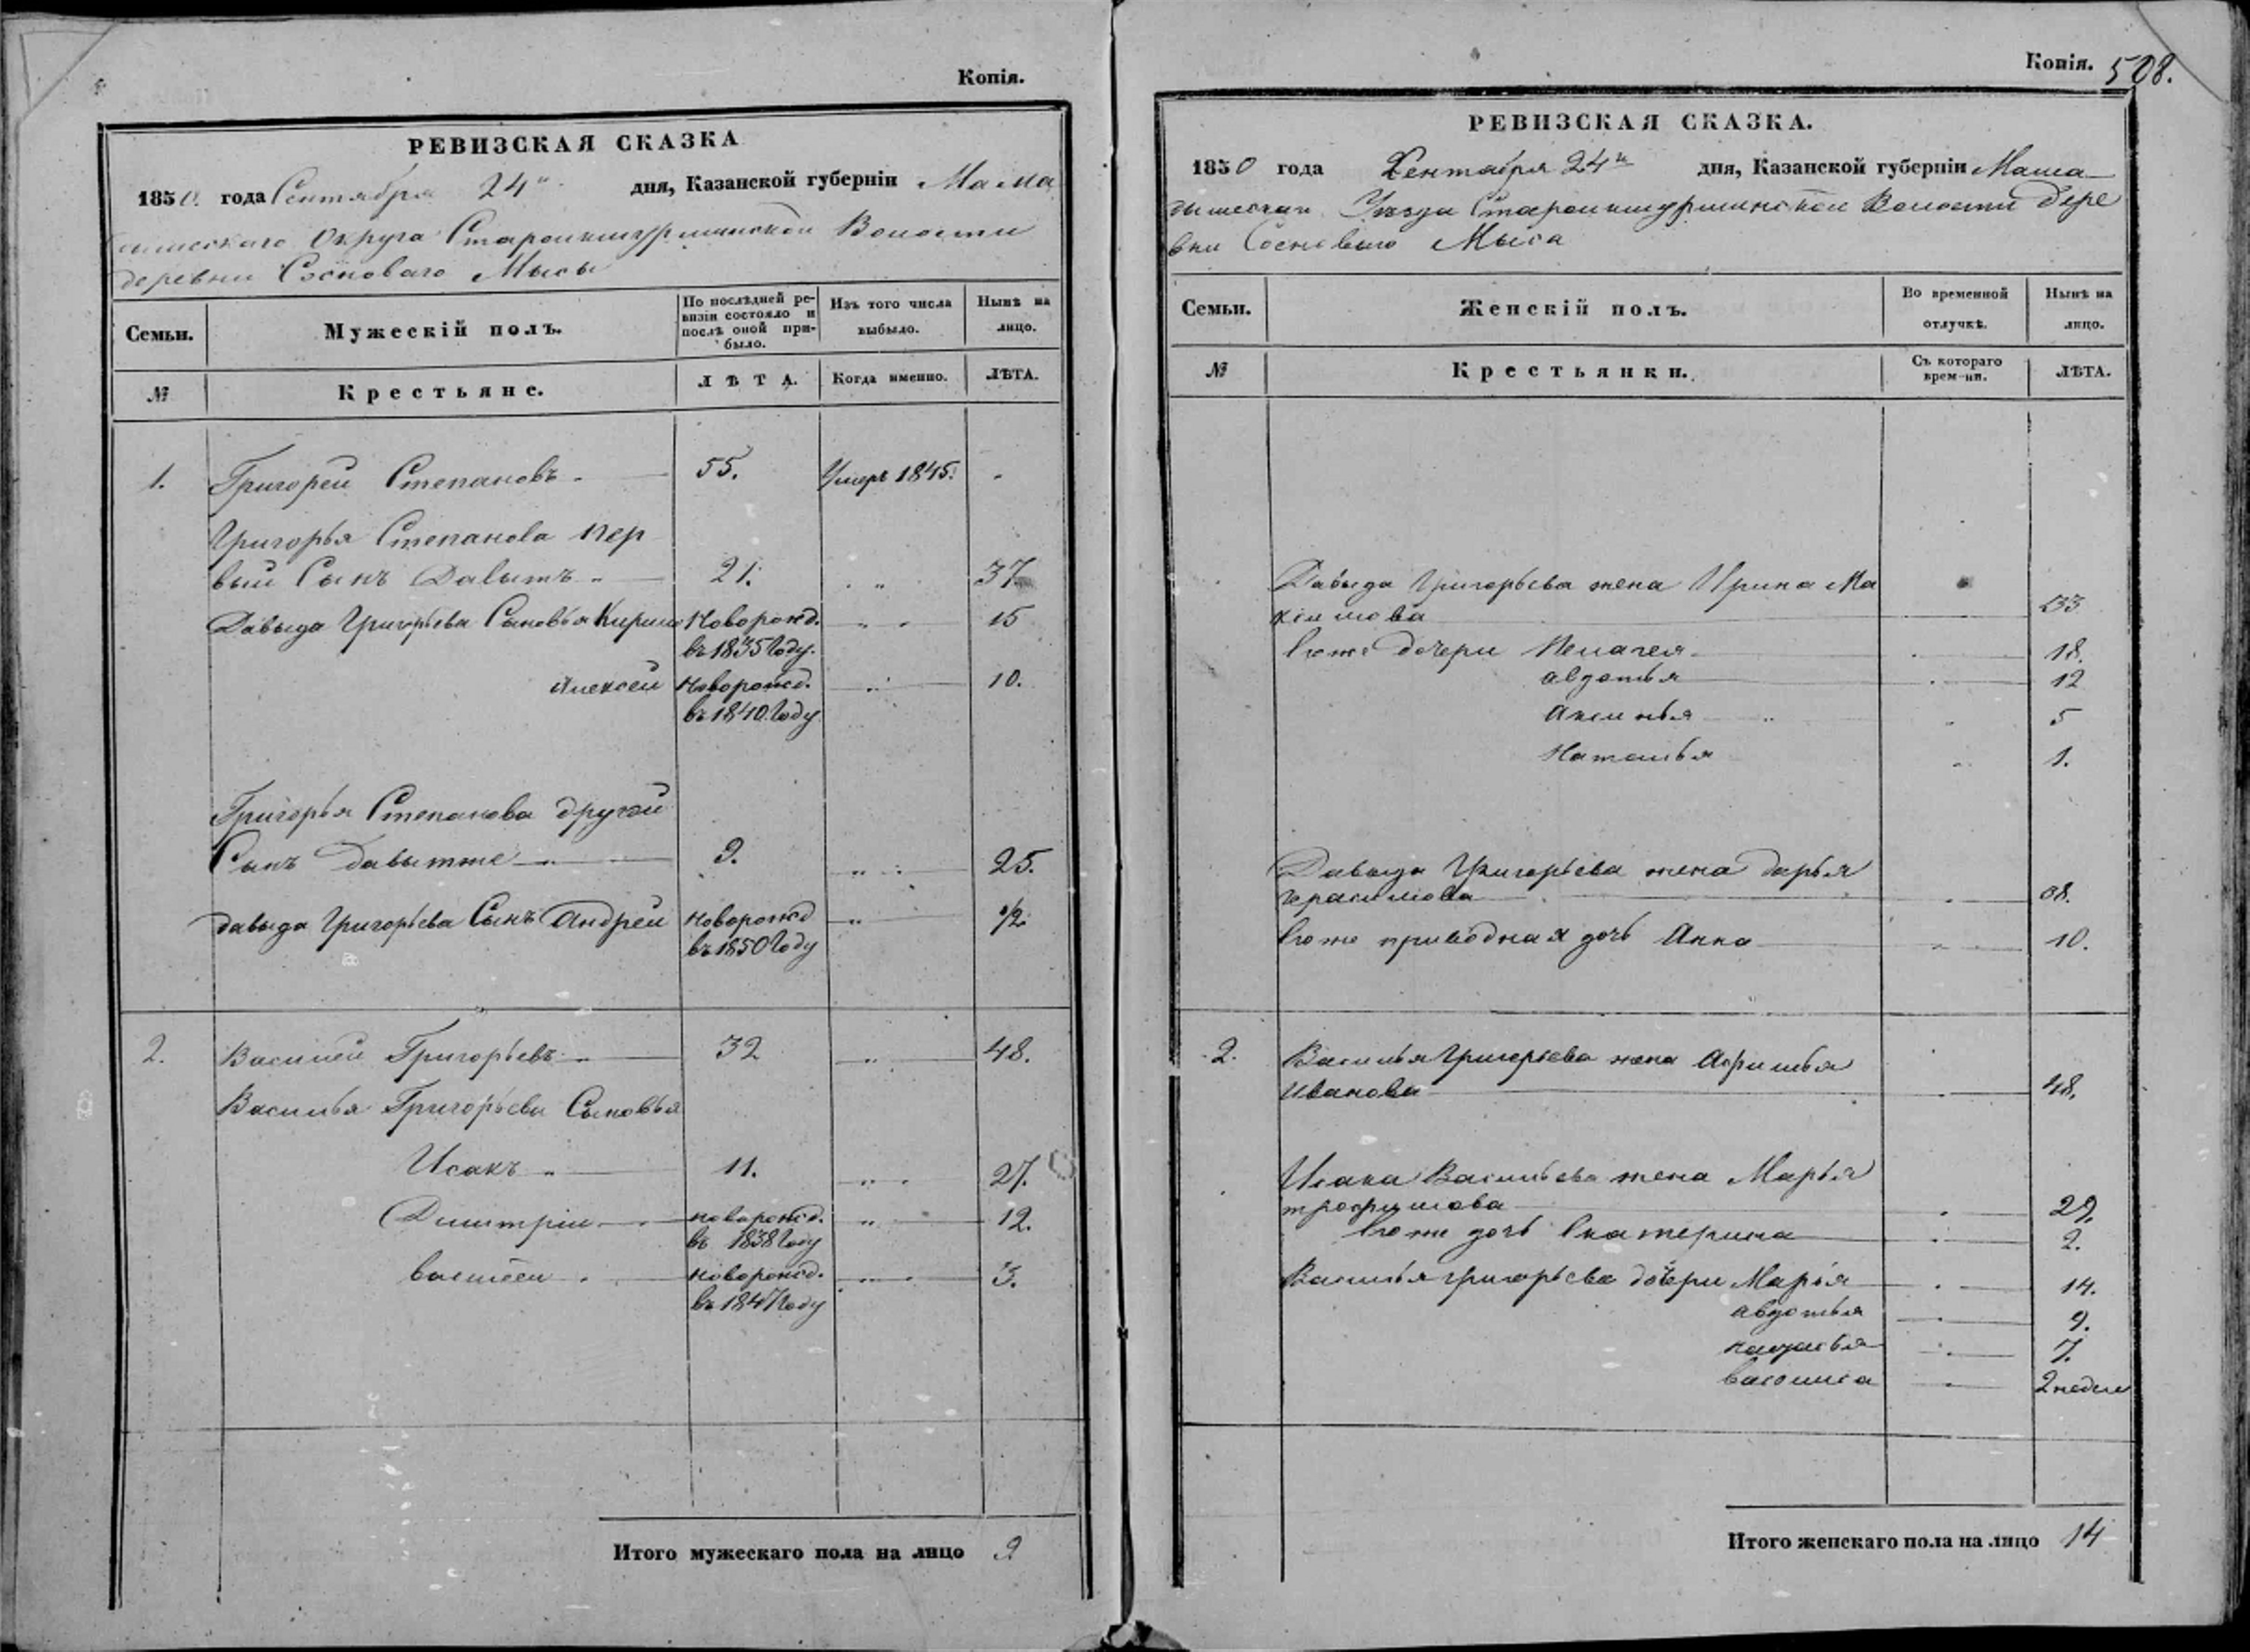 Копія.
РЕВИЗСКАЯ СКАЗКА
1850. года Сентября 24 дня, Казанской губерніи Мама
дышскаго Округа Волости
деревни Сосноваго Мысы
Семьи.
Мужескій полъ.
По послѣдней ре-
визіи состояло и
послѣ оной при-
было.
Изъ того числа
выбыло.
Нынѣ на
лицо.
№
Крестьяне.
ЛѢТА.
Когда именно.
ЛѢТА.
1. Григорей Степановъ 55. Умеръ 1845. -
Григорья Степанова пер
вый Сынъ Давытъ 21. 37
Давыда Григорьева Сыновья Новорожд. 15
въ 1835 Году.
Алексей Новорожд. 10.
въ 1840 Году
Григорья Степанова другой
Сынъ Давытже 9. 25.
Давыда Григорьева Сынъ Андрей Новорожд 1/2
въ 1850 Году
2. Василей Григорьевъ 32 48.
Василья Григорьева Сыновья
Исакъ 11. 27.
Димитрій новорожд. 12.
въ 1838 Году
Василей новорожд. 3.
въ 1847 Году
Итого мужескаго пола на лицо 9
Копія. 508.
РЕВИЗСКАЯ СКАЗКА.
1850 года Сентября 24 дня, Казанской губерніи Мама
Уезда Волости Дере
вни Сосноваго Мыса
Семьи.
Женскій полъ.
Во временной
отлучкѣ.
Нынѣ на
лицо.
№
Крестьянки.
Съ котораго
времени.
ЛѢТА.
Давыда Григорьева жена Ирина Ма
ксимова 33
Егоже дочери Пелагея 18.
Авдотья 12
Аксинья 5
Наталья 1.
Давыда Григорьева жена Дарья
Герасимова
Егоже приводная дочь Анна 10.
2. Василья Григорьева жена Афимья
Иванова 48.
Исака Васильева жена Марья
трофимова 29.
Егоже дочь Екатерина 2.
Василья григорьева дочери Марья 14.
авдотья 9.
7.
васониса 2 недели
Итого женскаго пола на лицо 14